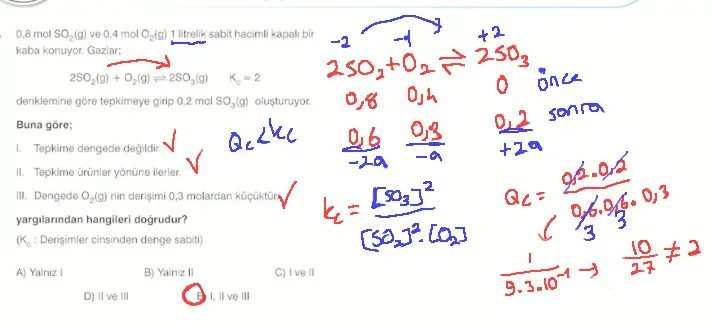 0,8 mol SO₂(g) ve 0,4 mol O₂(g) 1 litrelik sabit hacimli kapalı bir
kaba konuyor. Gazlar;
2SO₂(g) + O₂(g) ⇌ 2SO₃(g)   K_c = 2
denklemine göre tepkimeye girip 0,2 mol SO₃(g) oluşturuyor.
Buna göre;
I. Tepkime dengede değildir.
II. Tepkime ürünler yönüne ilerler.
III. Dengede O₂(g) nin derişimi 0,3 molardan küçüktür.
yargılarından hangileri doğrudur?
(K_c : Derişimler cinsinden denge sabiti)
A) Yalnız I   B) Yalnız II   C) I ve II
D) II ve III   E) I, II ve III
Qc < Kc
-2   -1   +2
2SO₂ + O₂ ⇌ 2SO₃
0,8   0,4   0   önce
0,6   0,3   0,2   sonra
-2a   -a   +2a
Kc = [SO₃]² / [SO₂]² . [O₂]
Qc = 0,2 . 0,2 / 0,6 . 0,6 . 0,3
3   3
1 / 9.3.10⁻¹ → 10/27 ≠ 2